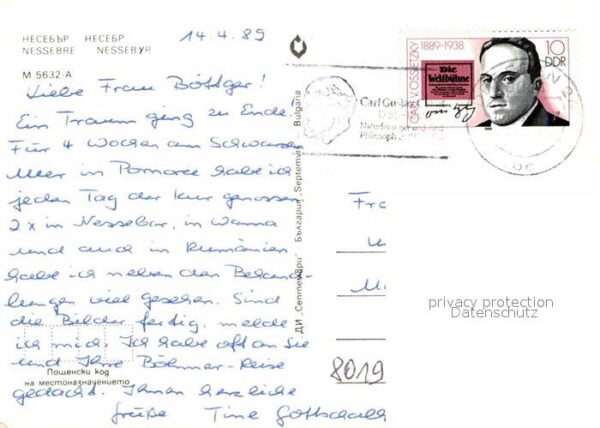 НЕСЕБЪР НЕСЕБР
NESSEBRE NESSEBYR
14.4.89
M 5632-A
Liebe Frau Böttger!
Ein Traum ging zu Ende!
Für 4 Wochen am Schwarzen
Meer in Pomorie habe ich
jeden Tag der Kur genossen
2x in Nessebar, in Warna
und auch in Rumänien
habe ich neben den Behand-
lungen viel gesehen. Sind
die Bilder fertig, melde
ich mich. Ich habe oft an Sie
und Ihre Böhmer-Reise
gedacht. Ihnen herzliche
Grüße Tine Gottschalk
Пощенски код
на местоназначението
ДИ „Септември" България „Septemvri" Bulgaria
CARL V. OSSIETZKY 1889-1938
Die
Weltbühne
10
DDR
Carl Gustav
Naturforscher und Arzt
Philosoph
Fra
M
8019
privacy protection
Datenschutz